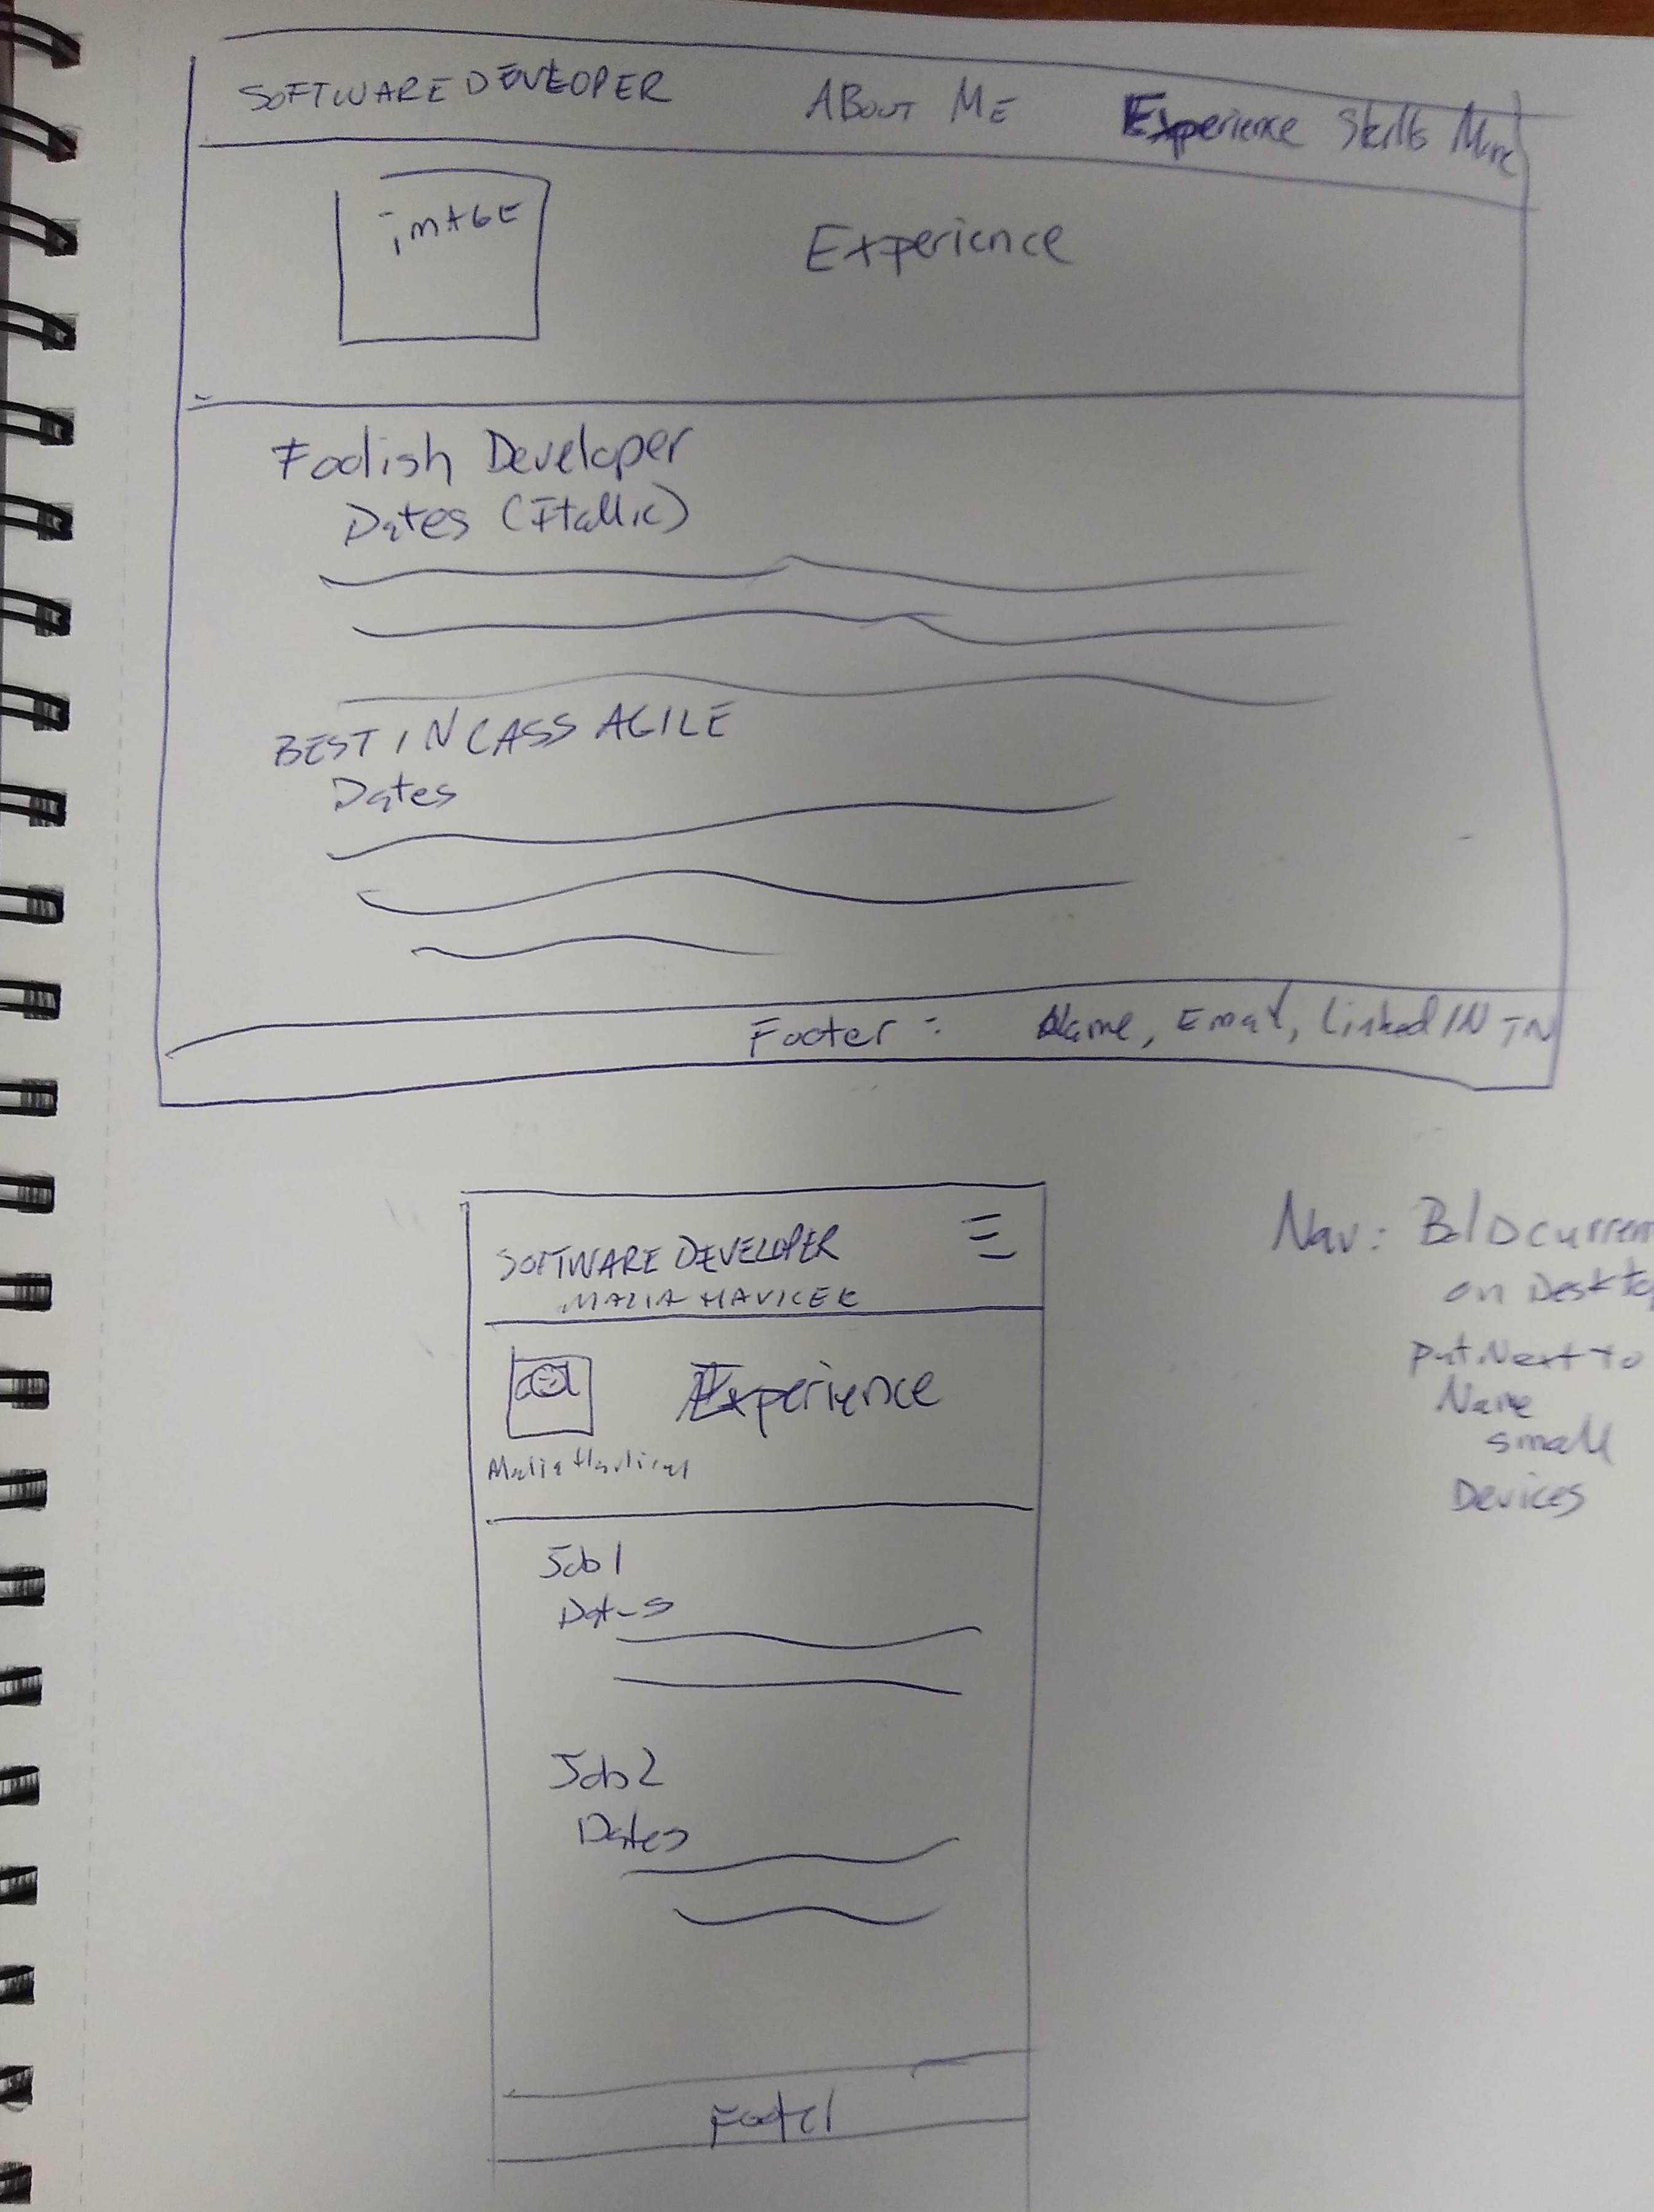 SOFTWARE DEVELOPER ABOUT ME Experience Skills More
IMAGE
Experience
Foolish Developer
Dates (Itallic)
BEST IN CASS AGILE
Dates
Footer: Name, Email, LinkedIN IN
SOFTWARE DEVELOPER
MALIA HAVICEK
Experience
Malia Havlicek
Job 1
Dates
Job 2
Dates
Footer
Nav: BolD current
on Desktop
put Next to
Name
small
Devices